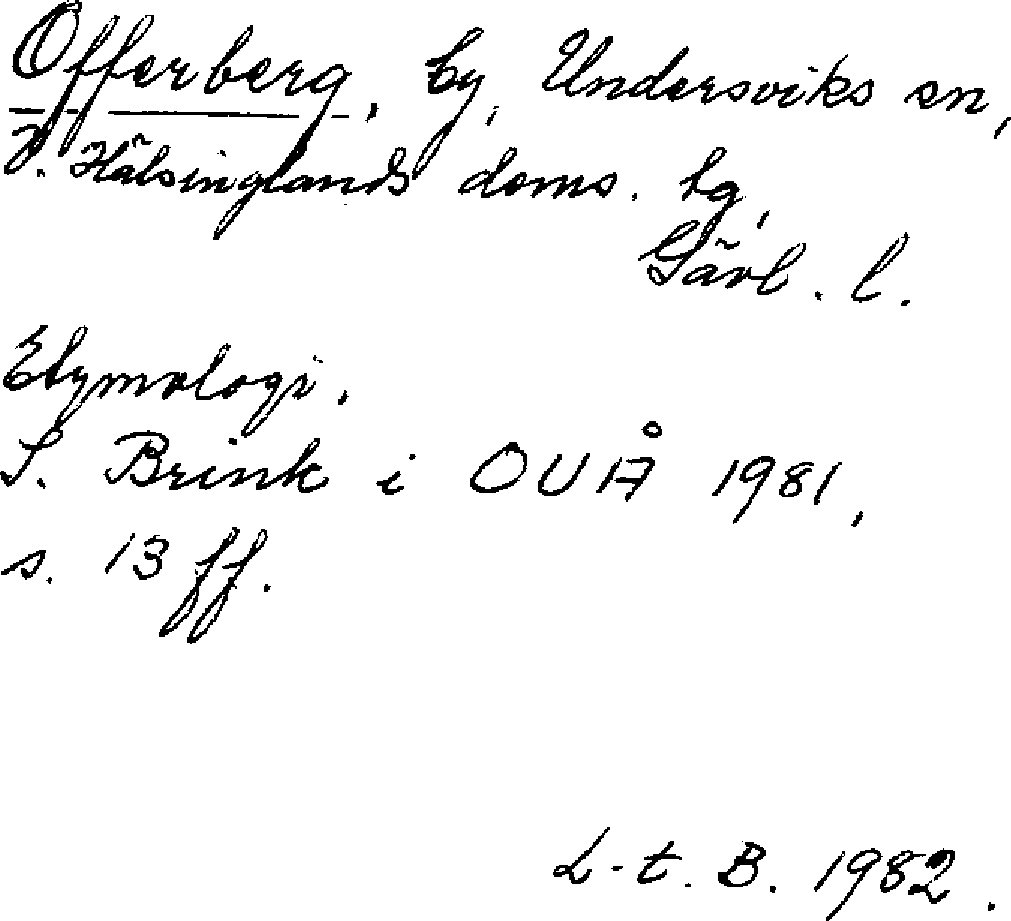 Offerberg, by, Undersviks sn,
V. Hälsinglands doms. tg,
Gävl. l.
Etymologi.
S. Brink i OUÅ 1981,
s. 13 ff.
L-t. B. 1982.